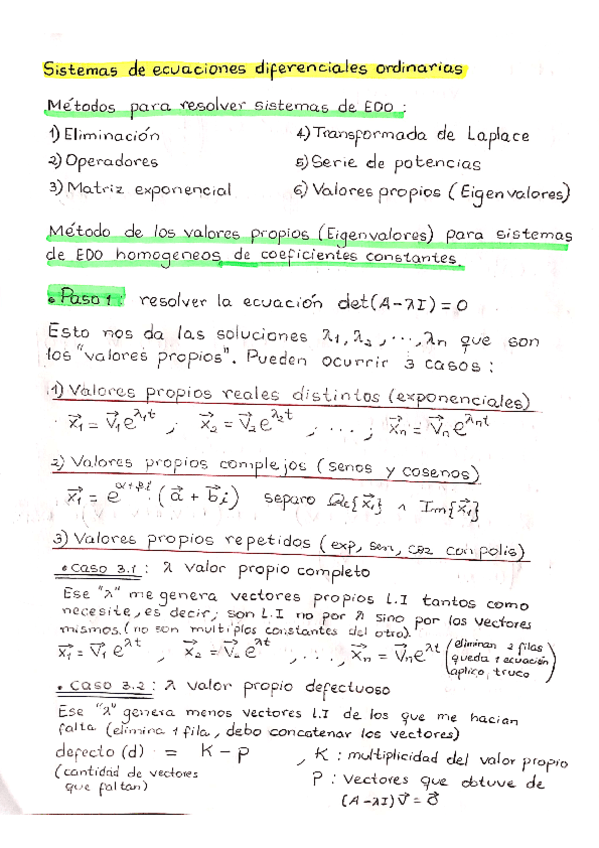 Sistemas de ecuaciones diferenciales ordinarias
Métodos para resolver sistemas de EDO :
1) Eliminación
4) Transformada de Laplace
2) Operadores
5) Serie de potencias
3) Matriz exponencial
6) Valores propios (Eigenvalores)
Método de los valores propios (Eigenvalores) para sistemas
de EDO homogeneos de coeficientes constantes.
• Paso 1 : resolver la ecuación det(A-λI) = 0
Esto nos da las soluciones λ1, λ2, ..., λn que son
los "valores propios". Pueden ocurrir 3 casos :
1) Valores propios reales distintos (exponenciales)
x⃗1 = v⃗1 e^λ1t , x⃗2 = v⃗2 e^λ2t , ... ; x⃗n = v⃗n e^λnt
2) Valores propios complejos (senos y cosenos)
x⃗1 = e^α+βi (a⃗ + b⃗i) separo Re{x⃗1} ∧ Im{x⃗1}
3) Valores propios repetidos (exp, sen, cos con polis)
• caso 3.1 : λ valor propio completo
Ese "λ" me genera vectores propios L.I tantos como
necesite, es decir; son L.I no por λ sino por los vectores
mismos. (no son multiplos constantes del otro).
x⃗1 = v⃗1 e^λt , x⃗2 = v⃗2 e^λt , ... , x⃗n = v⃗n e^λt (eliminan 2 filas
queda 1 ecuación
aplico truco)
• caso 3.2 : λ valor propio defectuoso
Ese "λ" genera menos vectores L.I de los que me hacían
falta (elimina 1 fila, debo concatenar los vectores)
defecto (d) = K - p , K : multiplicidad del valor propio
(cantidad de vectores
que faltan)
P : vectores que obtuve de
(A-λI)v⃗ = 0⃗